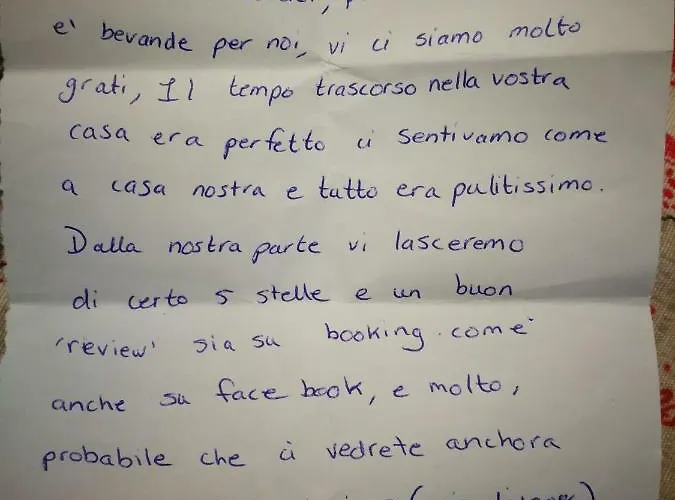 e' bevande per noi, vi ci siamo molto
grati, Il tempo trascorso nella vostra
casa era perfetto ci sentivamo come
a casa nostra e tutto era pulitissimo.
Dalla nostra parte vi lasceremo
di certo 5 stelle e un buon
'review' sia su booking.come'
anche su face book, e molto,
probabile che ci vedrete anchora